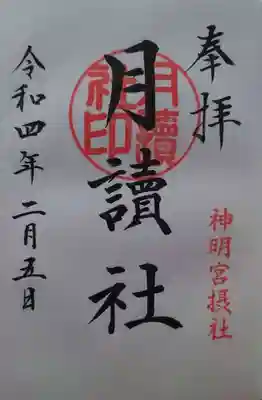 奉拝
月讀社
月讀社印
神明宮摂社
令和四年二月五日